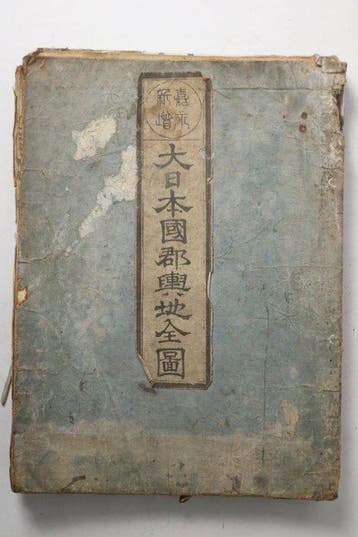 嘉永
新增
大日本國郡輿地全圖